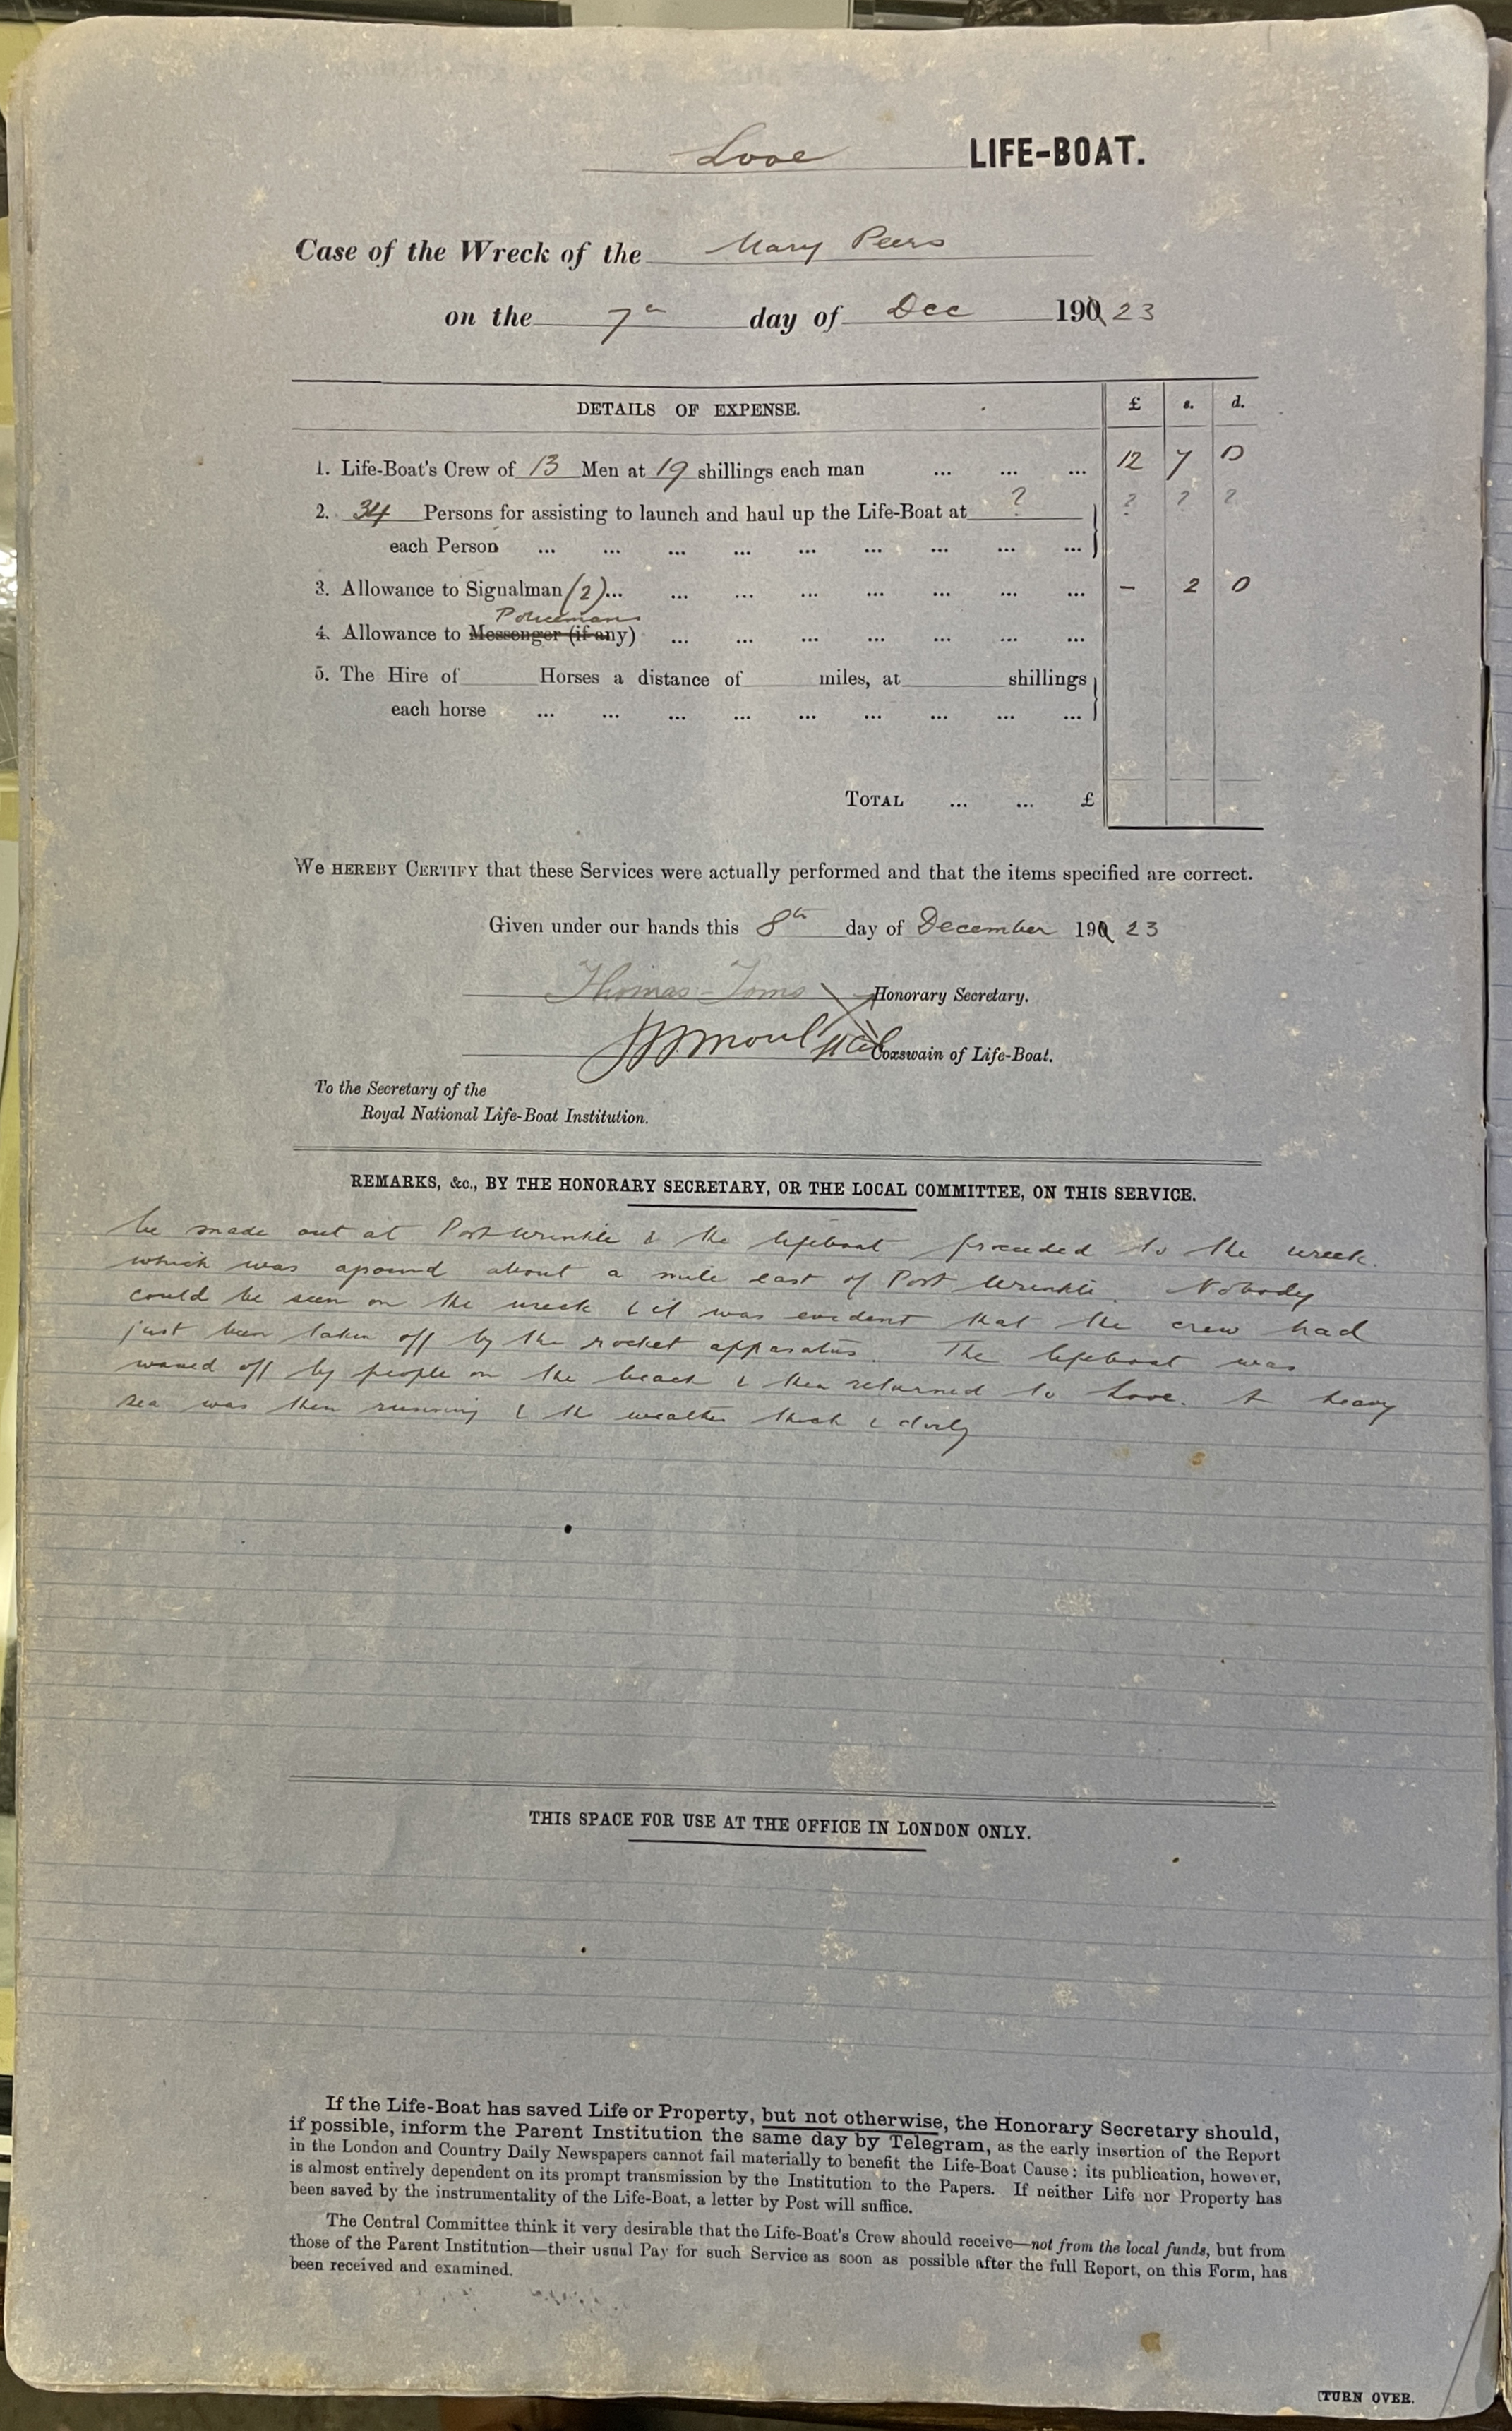 Looe LIFE-BOAT.
Case of the Wreck of the Mary Peers
on the 7th day of Dec 190 23
DETAILS OF EXPENSE. £ s. d.
1. Life-Boat's Crew of 13 Men at 19 shillings each man ... ... ... 12 7 0
2. 34 Persons for assisting to launch and haul up the Life-Boat at ? ? ? ?
each Person ... ... ... ... ... ... ... ... ...
3. Allowance to Signalman (2)... ... ... ... ... ... ... ... - 2 0
Policeman
4. Allowance to Messenger (if any) ... ... ... ... ... ... ...
5. The Hire of Horses a distance of miles, at shillings
each horse ... ... ... ... ... ... ... ... ...
TOTAL ... ... £
We HEREBY CERTIFY that these Services were actually performed and that the items specified are correct.
Given under our hands this 8th day of December 190 23
Thomas Toms Honorary Secretary.
Coxswain of Life-Boat.
To the Secretary of the
Royal National Life-Boat Institution.
REMARKS, &c., BY THE HONORARY SECRETARY, OR THE LOCAL COMMITTEE, ON THIS SERVICE.
be made out at Port Wrinkle & the lifeboat proceeded to the wreck.
which was aground about a mile east of Port Wrinkle. Nobody
could be seen on the wreck & it was evident that the crew had
just been taken off by the rocket apparatus. The lifeboat was
waved off by people on the beach & then returned to Looe. A heavy
sea was then running & the weather thick & dirty
THIS SPACE FOR USE AT THE OFFICE IN LONDON ONLY.
If the Life-Boat has saved Life or Property, but not otherwise, the Honorary Secretary should,
if possible, inform the Parent Institution the same day by Telegram, as the early insertion of the Report
in the London and Country Daily Newspapers cannot fail materially to benefit the Life-Boat Cause: its publication, however,
is almost entirely dependent on its prompt transmission by the Institution to the Papers. If neither Life nor Property has
been saved by the instrumentality of the Life-Boat, a letter by Post will suffice.
The Central Committee think it very desirable that the Life-Boat's Crew should receive—not from the local funds, but from
those of the Parent Institution—their usual Pay for such Service as soon as possible after the full Report, on this Form, has
been received and examined.
[TURN OVER.